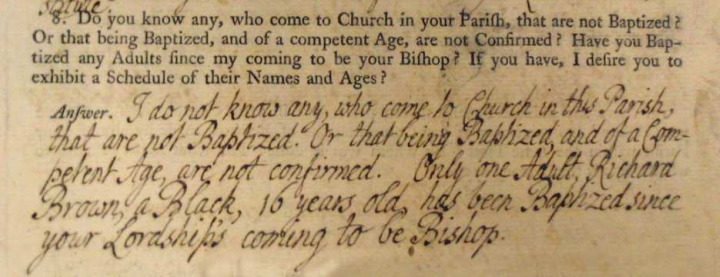 statute.
8. Do you know any, who come to Church in your Pariſh, that are not Baptized?
Or that being Baptized, and of a competent Age, are not Confirmed? Have you Bap-
tized any Adults ſince my coming to be your Biſhop? If you have, I deſire you to
exhibit a Schedule of their Names and Ages?
Anſwer. I do not know any, who come to Church in this Parish,
that are not Baptized. Or that being Baptized, and of a Com-
petent Age, are not confirmed. Only one Adult, Richard
Brown, a Black, 16 years old, has been Baptized since
your Lordship's coming to be Bishop.